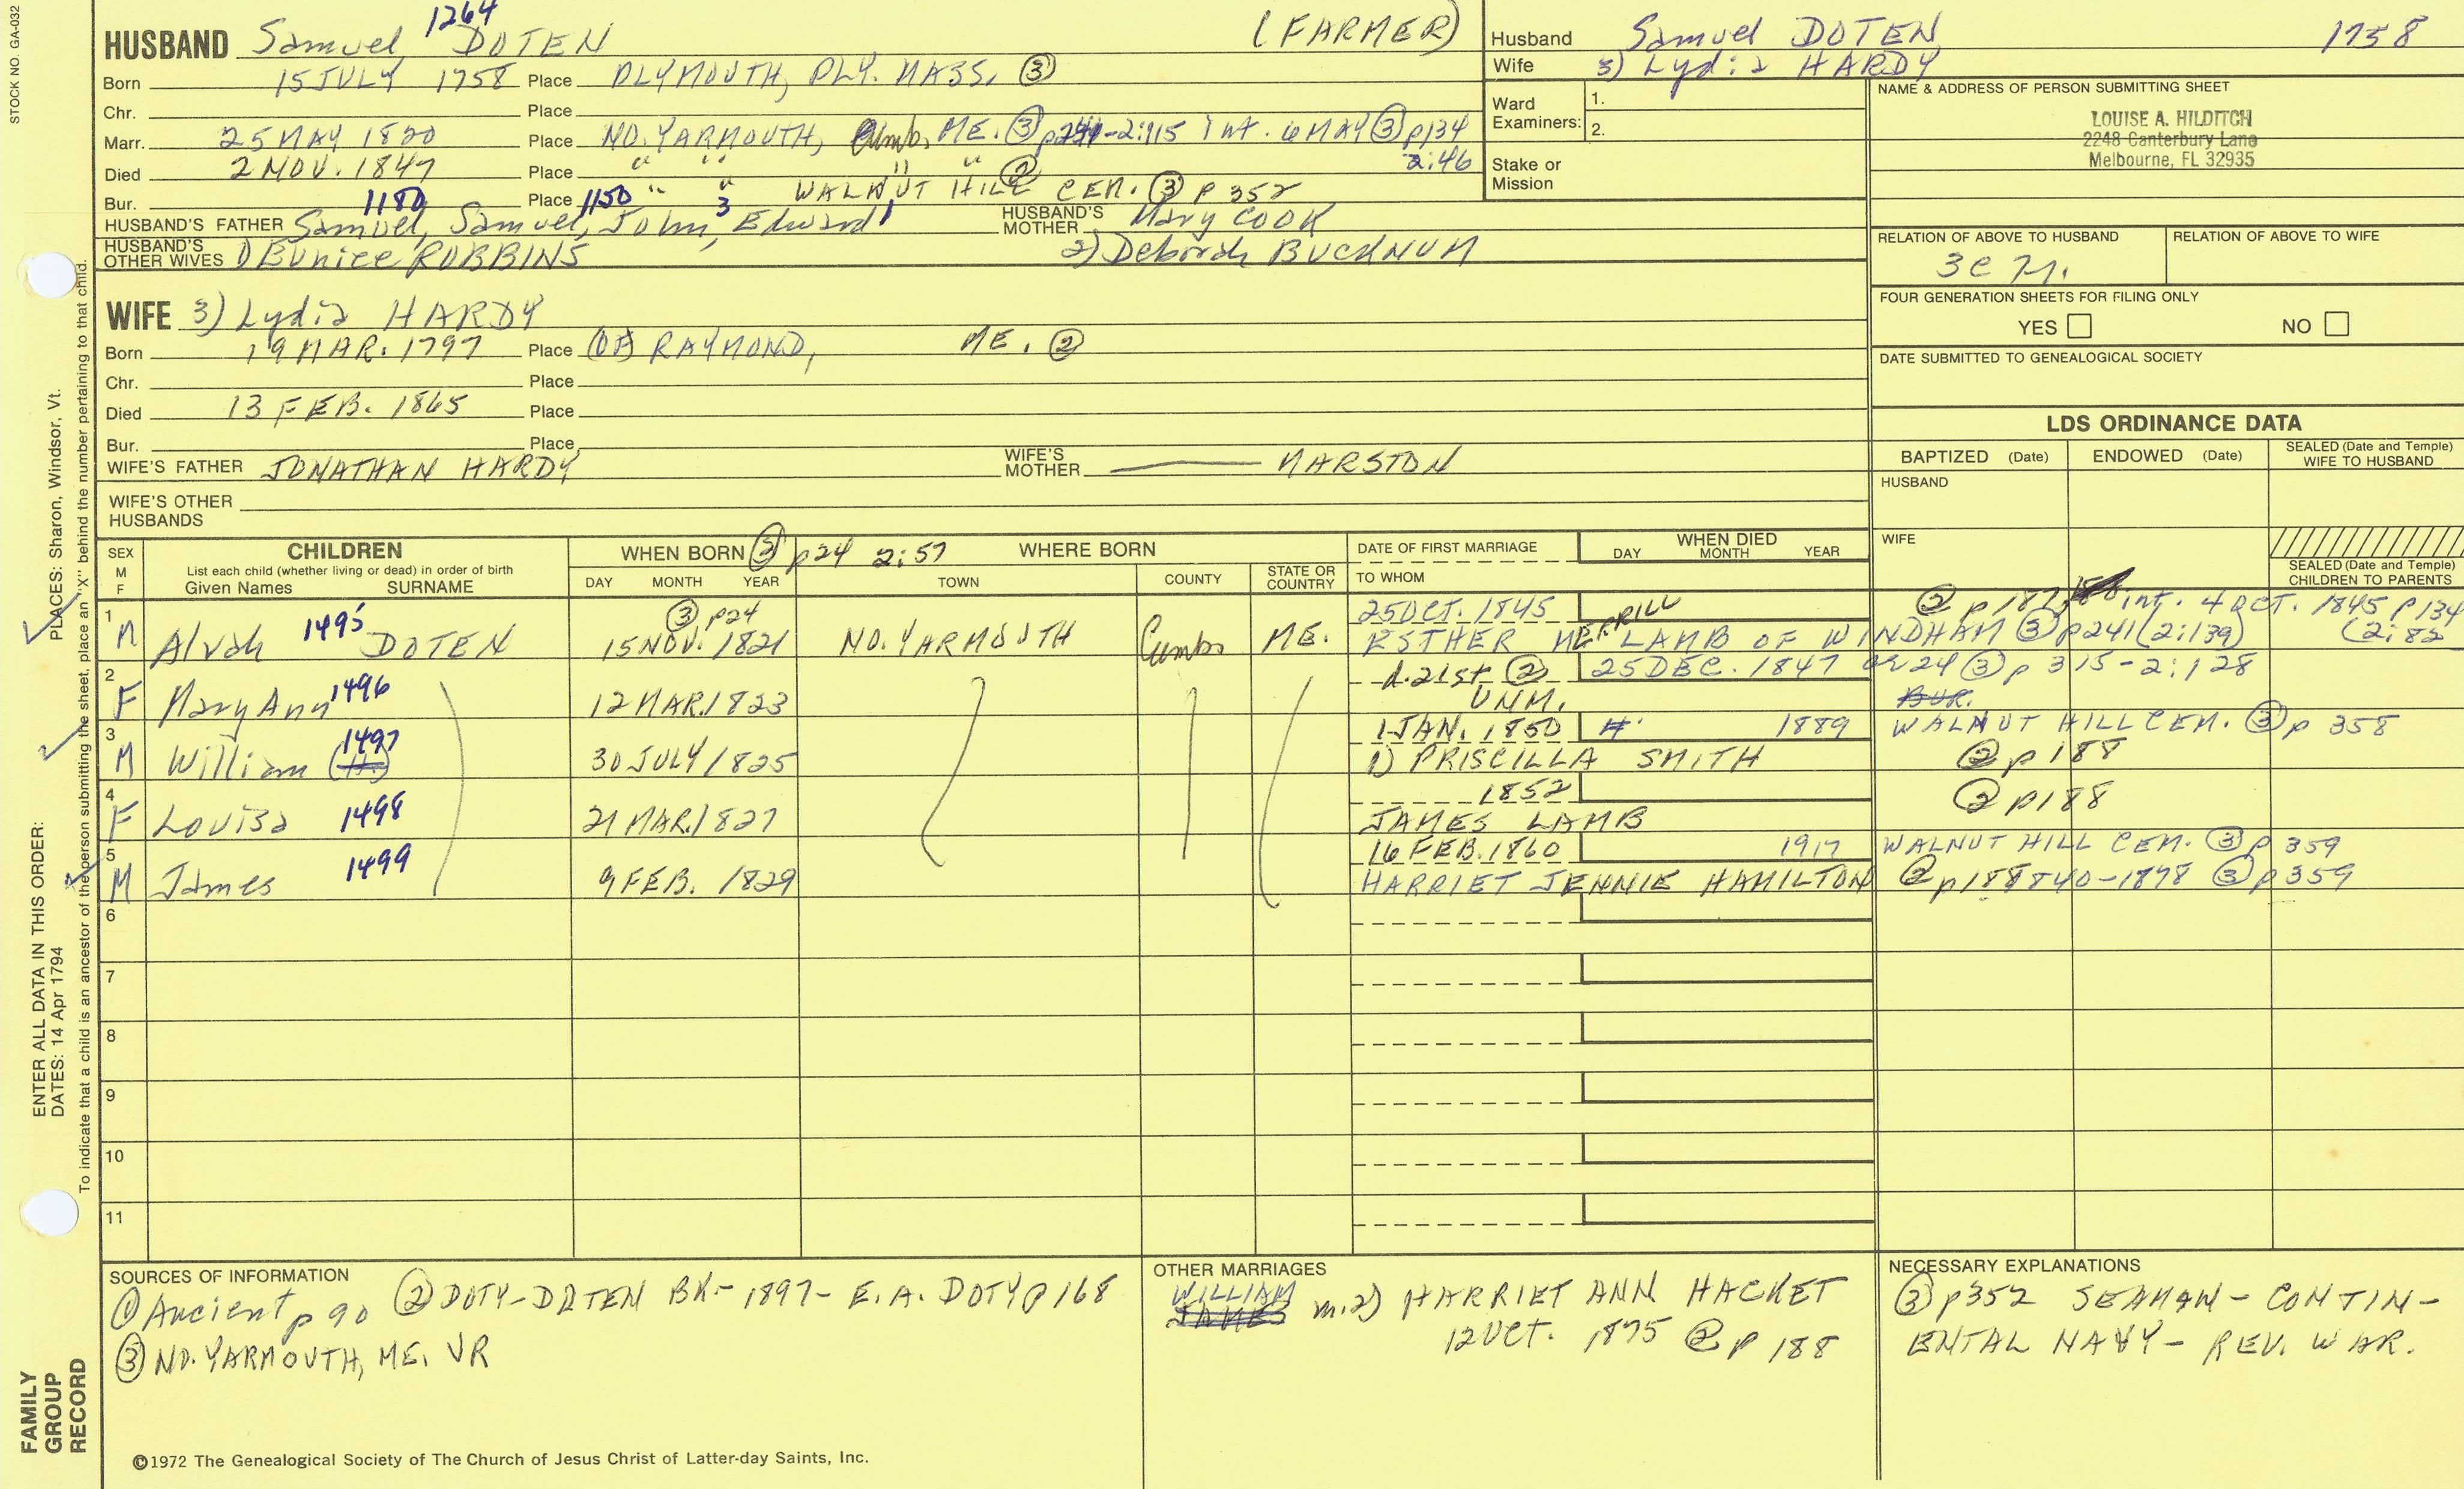 STOCK NO. GA-032
1264
HUSBAND Samuel DOTEN (FARMER)
Born 15 JULY 1758 Place PLYMOUTH, PLY. MASS. ③
Chr. Place
Marr. 25 MAY 1820 Place NO. YARMOUTH, Cumb. ME. ③ p241-2:115 int. 6 MAY ③ p134
2:46
Died 2 NOV. 1847 Place " " " " ②
Bur. Place " " WALNUT HILL CEM. ③ p 352
1180 1150 3 1
HUSBAND'S FATHER Samuel, Samuel, John, Edward HUSBAND'S MOTHER Mary COOK
HUSBAND'S OTHER WIVES 1) Eunice ROBBINS 2) Deborah BUCKNUM
WIFE 3) Lydia HARDY
Born 19 MAR. 1797 Place (OF) RAYMOND, ME. ②
Chr. Place
Died 13 FEB. 1865 Place
Bur. Place
WIFE'S FATHER JONATHAN HARDY WIFE'S MOTHER —— MARSTON
WIFE'S OTHER HUSBANDS
Husband Samuel DOTEN 1758
Wife 3) Lydia HARDY
Ward Examiners: 1.
2.
Stake or Mission
NAME & ADDRESS OF PERSON SUBMITTING SHEET
LOUISE A. HILDITCH
2248 Canterbury Lane
Melbourne, FL 32935
RELATION OF ABOVE TO HUSBAND RELATION OF ABOVE TO WIFE
FOUR GENERATION SHEETS FOR FILING ONLY
YES NO
DATE SUBMITTED TO GENEALOGICAL SOCIETY
LDS ORDINANCE DATA
BAPTIZED (Date) ENDOWED (Date) SEALED (Date and Temple) WIFE TO HUSBAND
HUSBAND
WIFE
SEALED (Date and Temple) CHILDREN TO PARENTS
SEX M F CHILDREN WHEN BORN ③ p24 2:57 WHERE BORN DATE OF FIRST MARRIAGE WHEN DIED
List each child (whether living or dead) in order of birth
Given Names SURNAME DAY MONTH YEAR TOWN COUNTY STATE OR COUNTRY TO WHOM DAY MONTH YEAR
③ p24 25 OCT. 1845 ② p187 int. 4 OCT. 1845 p134
1 M Alvah 1495 DOTEN 15 NOV. 1821 NO. YARMOUTH Cumb ME. ESTHER MERRILL LAMB OF WINDHAM ③ p241 (2:139) (2:82
d. 21st ② 25 DEC. 1847 or 24 ③ p 315-2:128
2 F Mary Ann 1496 12 MAR. 1823 UNM. BUR.
1 JAN. 1850 1889 WALNUT HILL CEM. ③ p 358
3 M William (H.) 1497 30 JULY 1825 1) PRISCILLA SMITH ② p 188
1852 ② p188
4 F Louisa 1498 21 MAR. 1827 JAMES LAMB
16 FEB. 1860 1917 WALNUT HILL CEM. ③ p 359
5 M James 1499 9 FEB. 1829 HARRIET JENNIE HAMILTON ② p188 1840-1898 ③ p359
6
7
8
9
10
11
SOURCES OF INFORMATION
① Ancient p 90 ② DOTY-DOTEN BK.- 1897- E. A. DOTY p168
③ NO. YARMOUTH, ME. VR
OTHER MARRIAGES
WILLIAM
JAMES m. 2) HARRIET ANN HACKET
12 OCT. 1875 ② p 188
NECESSARY EXPLANATIONS
③ p352 SEAMAN - CONTIN-
ENTAL NAVY - REV. WAR.
©1972 The Genealogical Society of The Church of Jesus Christ of Latter-day Saints, Inc.
FAMILY GROUP RECORD
ENTER ALL DATA IN THIS ORDER:
DATES: 14 Apr 1794 PLACES: Sharon, Windsor, Vt.
To indicate that a child is an ancestor of the person submitting the sheet, place an "X" behind the number pertaining to that child.